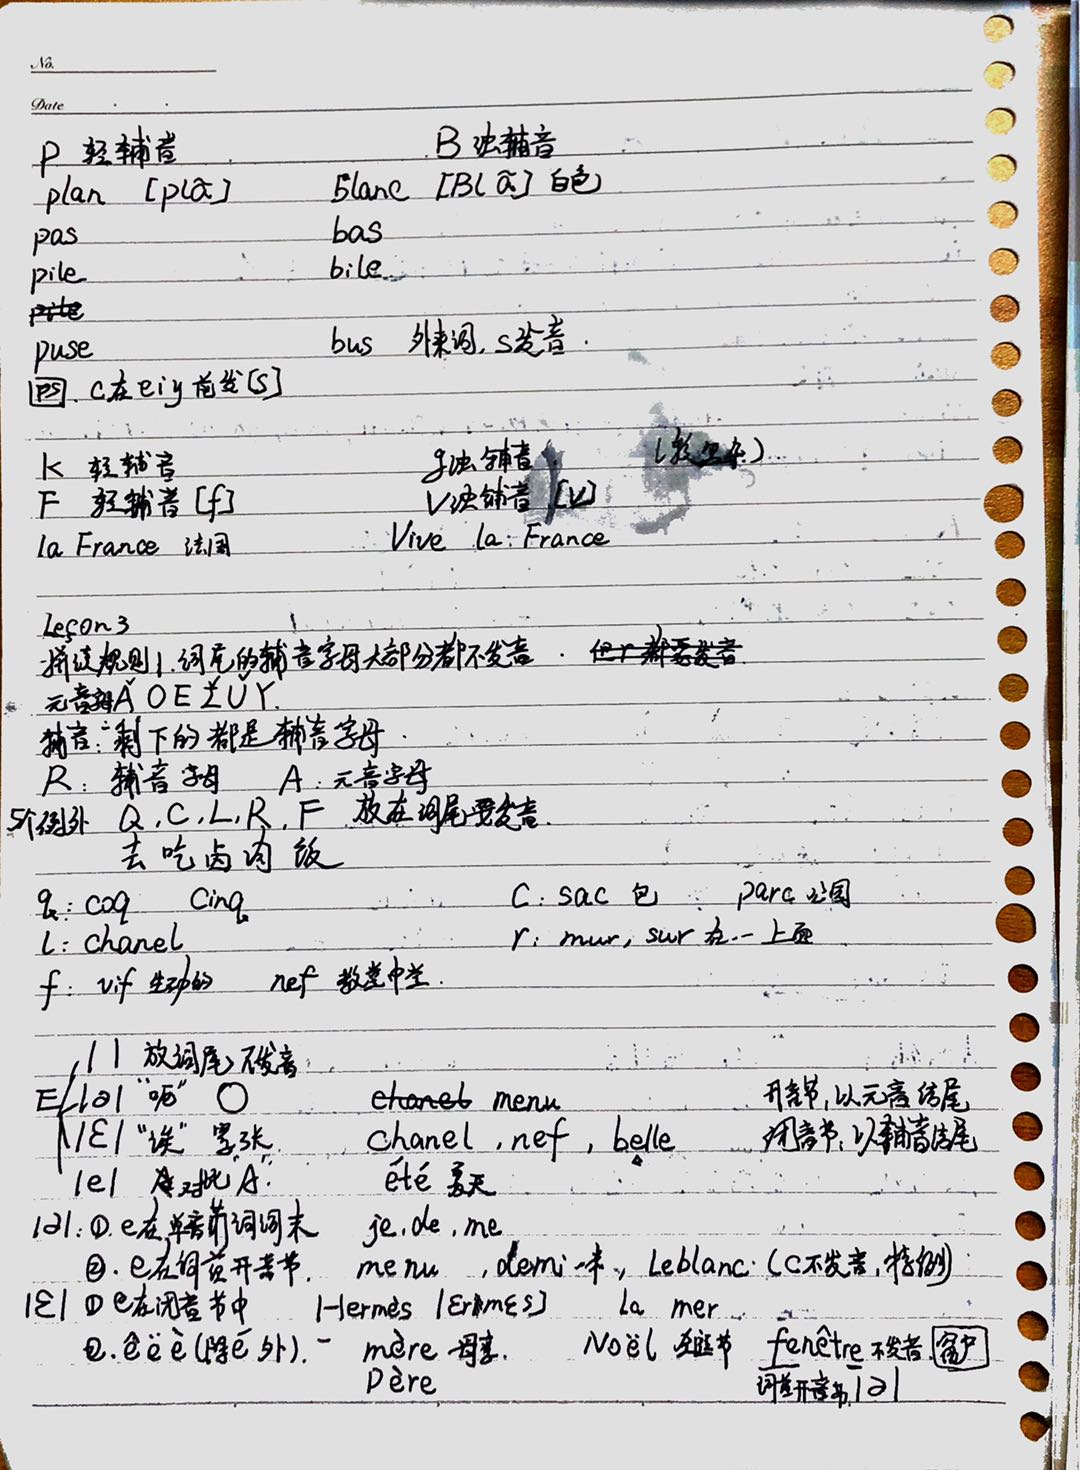 No.
Date
P 轻辅音 B 浊辅音
plan [plã] blanc [Blã] 白色
pas bas
pile bile
pile
puse bus 外来词, s发音.
PS. c在eiy前发[s]
K 轻辅音 g浊辅音
F 轻辅音[f] V浊辅音[v]
la France 法国 Vive la France
Leçon 3
拼读规则1.词尾的辅音字母大部分都不发音. 但r都要发音
元音字母A O E I U Y.
辅音:剩下的都是辅音字母.
R: 辅音字母 A: 元音字母
5个例外 Q, C, L, R, F 放在词尾要发音.
去吃卤肉饭
q: coq cinq C: sac 包 parc 公园
L: chanel r: mur, sur 在...上面
f: vif 生动的 nef 教堂中堂.
| | 放词尾不发音
E |ə| "呃" ○ chanel menu 开音节,以元音结尾
|ɛ| "诶" 嘴张 chanel, nef, belle 闭音节,以辅音结尾
|e| "A". été 夏天
|ə|: ①. e在单音节词词末 je, de, me
②. e在词首开音节. menu, demi 一半, Leblanc. (C不发音,特例)
|ɛ| ① e在闭音节中 Hermès |ɛrmɛs] La mer
②. ê ë è (除é外). mère 母亲. Noël 圣诞节 fenêtre 不发音 窗户
père 词首开音节 |ə|